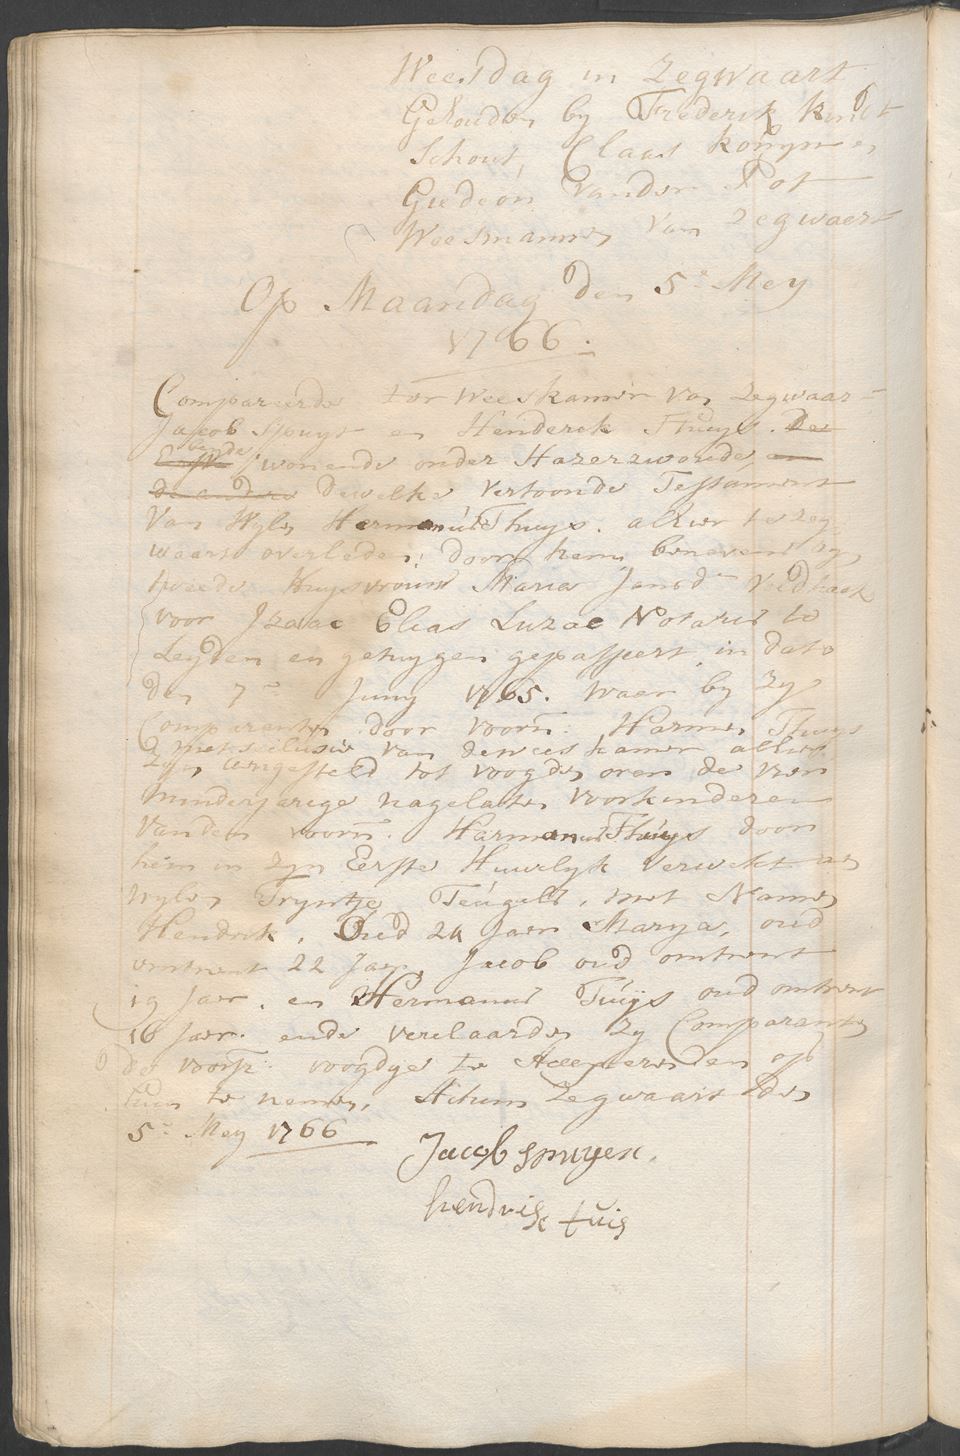 Weesdag in Zegwaart
Gehouden by Frederik Kindt
Schout, Claas Konynen
Giedeon vander Pot
Weesmannen van Zegwaert
Op Maandag den 5e Mey
1766.
Compareerde ter Weeskamer van Zegwaar-
Jacob Spuyt en Henderck Thuys. De
Erste beyde wonende onder Hazerzwoude, en
de andere dewelke vertoonde Testament
van Wylen Hermanus Thuys. alhier te Zeg
waart overleden; door hem benevens zyn
tweede Huysvrouw Maria Jansdr
voor Izaac Elias Luzac Notaris te
Leyden en getuygen gepasseert in dato
den 7en Juny 1765. waer by Zy
Comparanten door voorn. Harmen Thuys
met seclusie van deweeskamer alhier
zyn aengesteld tot voogden over de vier
minderjarege nagelaten voorkinderen
vanden voorn. Harmanus Thuys door
hem in zyn Eerste Huwelyk verwekt aen
wylen Tryntje Teúgels, met Namen
Hendrik, Oud 24 Jaer Marya, oud
omtrent 22 Jaer, Jacob oud omtrent
19 Jaer, en Hermanus Túijs oud omtrent
16 Jaer. ende verclaarden zy Comparanten
de voorsz. voogdye te Accepteren den op
hun te nemen, Actum Zegwaart den
5e Mey 1766
Jacob spruyt
hendrik tuis